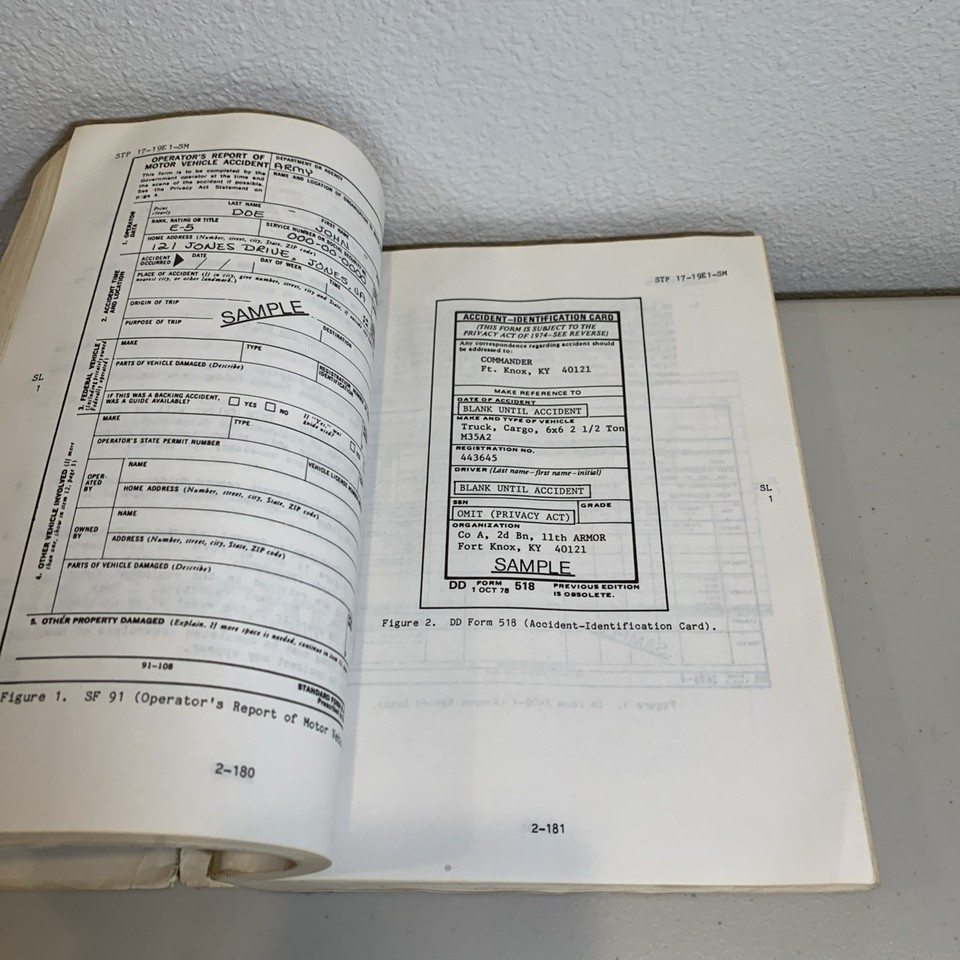 STP 17-19E1-SM
OPERATOR'S REPORT OF
MOTOR VEHICLE ACCIDENT
This form is to be completed by the
Government operator at the time and
the scene of the accident if possible.
See the Privacy Act Statement on
page 4.
DEPARTMENT OR AGENCY
ARMY
NAME AND LOCATION OF
1. OPERATOR
DATA
Print
clearly
LAST NAME
DOE
FIRST NAME
JOHN
RANK, RATING OR TITLE
E-5
SERVICE NUMBER OR SOCIAL
000-00-0000
HOME ADDRESS (Number, street, city, State, ZIP code)
121 JONES DRIVE, JONES, GA
2. ACCIDENT TIME
AND LOCATION
ACCIDENT
OCCURRED
DATE
/ /
DAY OF WEEK
TIME
PLACE OF ACCIDENT (If in city, give number, street, city and State, if
nearest city, or other landmark.)
ORIGIN OF TRIP
SAMPLE
PURPOSE OF TRIP
DESTINATION
3. FEDERAL VEHICLE
MAKE
TYPE
REGISTRATION
PARTS OF VEHICLE DAMAGED (Describe)
IF THIS WAS A BACKING ACCIDENT,
WAS A GUIDE AVAILABLE?
YES
NO
4. OTHER VEHICLE INVOLVED (If more
than one, show in item 12, page 3)
MAKE
TYPE
OPERATOR'S STATE PERMIT NUMBER
OPER-
ATED
BY
NAME
VEHICLE LICENSE
HOME ADDRESS (Number, street, city, State, ZIP code)
OWNED
BY
NAME
ADDRESS (Number, street, city, State, ZIP code)
PARTS OF VEHICLE DAMAGED (Describe)
5. OTHER PROPERTY DAMAGED (Explain. If more space is needed, continue in item
91-108
STANDARD FORM
SL
1
Figure 1. SF 91 (Operator's Report of Motor
2-180
STP 17-19E1-SM
ACCIDENT-IDENTIFICATION CARD
(THIS FORM IS SUBJECT TO THE
PRIVACY ACT OF 1974-SEE REVERSE)
Any correspondence regarding accident should
be addressed to:
COMMANDER
Ft. Knox, KY 40121
MAKE REFERENCE TO
DATE OF ACCIDENT
BLANK UNTIL ACCIDENT
MAKE AND TYPE OF VEHICLE
Truck, Cargo, 6x6 2 1/2 Ton
M35A2
REGISTRATION NO.
443645
DRIVER (Last name-first name-initial)
BLANK UNTIL ACCIDENT
SSN
GRADE
OMIT (PRIVACY ACT)
ORGANIZATION
Co A, 2d Bn, 11th ARMOR
Fort Knox, KY 40121
SAMPLE
DD FORM 518
1 OCT 78
PREVIOUS EDITION
IS OBSOLETE.
SL
1
Figure 2. DD Form 518 (Accident-Identification Card).
2-181